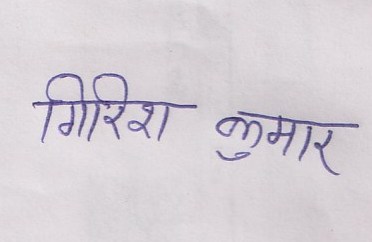 गिरिश कुमार